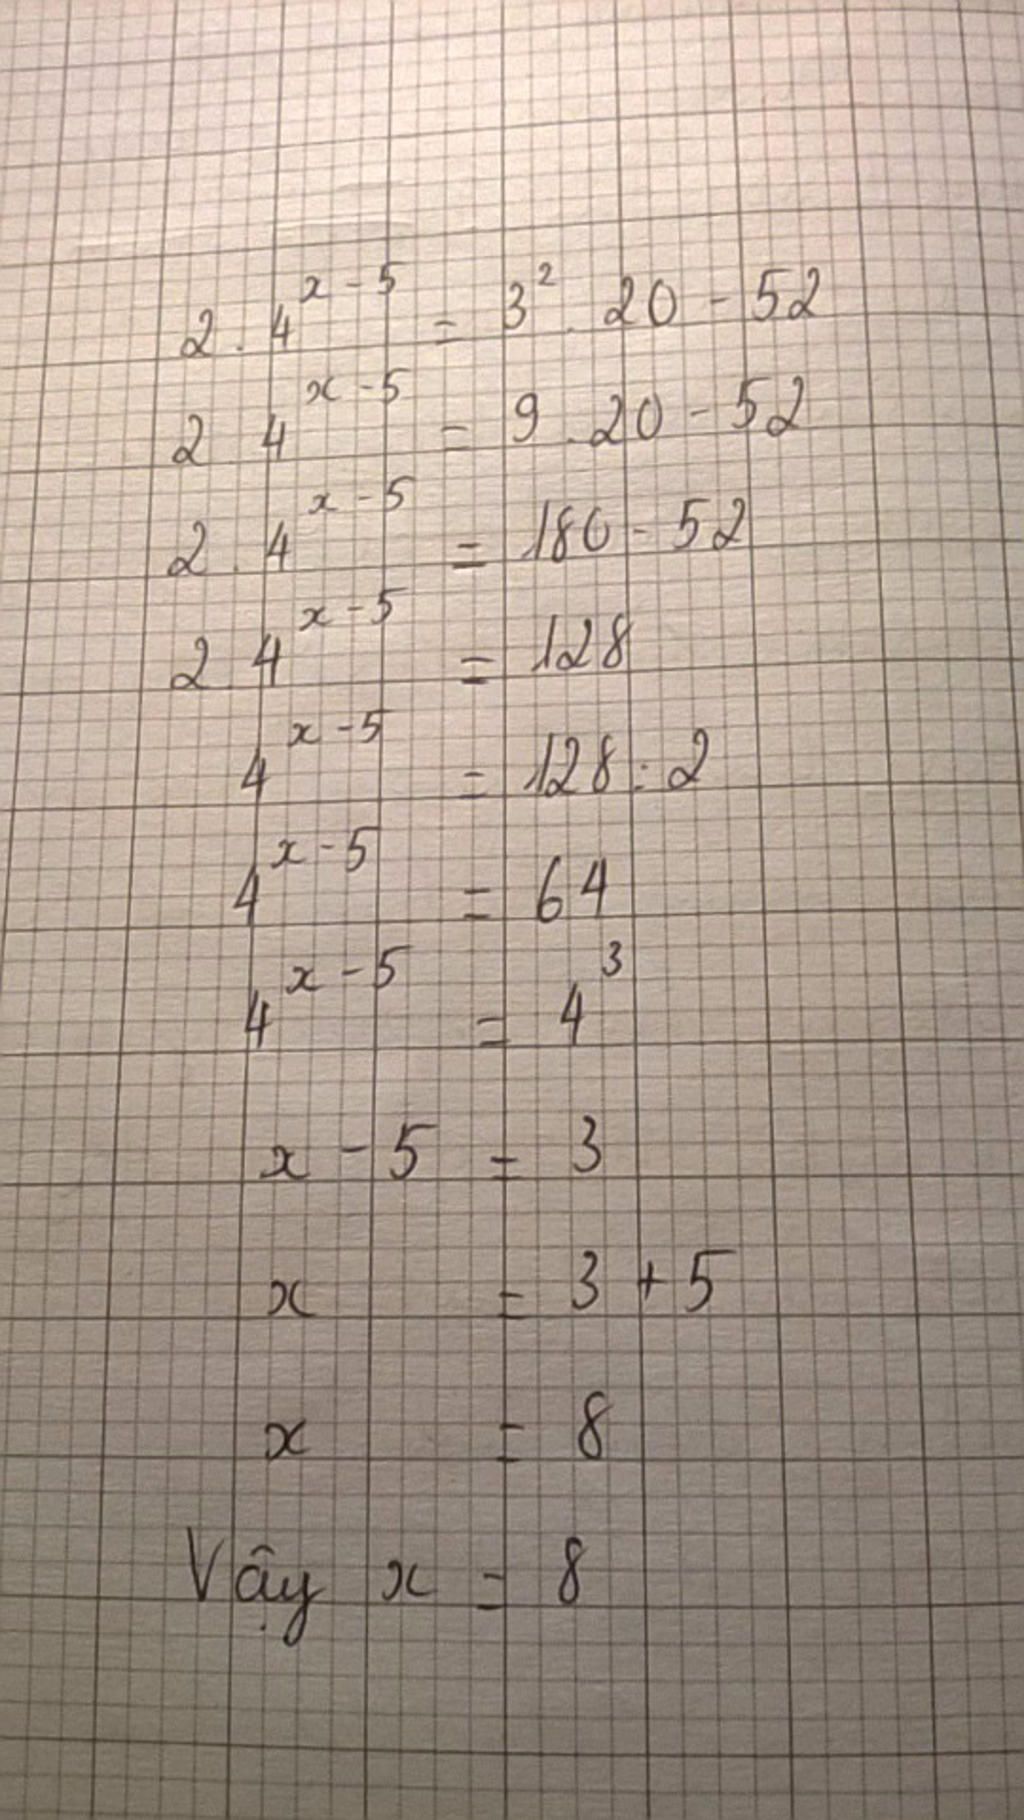 2 . 4^{x-5} = 3² . 20 - 52
2 4^{x-5} = 9 . 20 - 52
2 . 4^{x-5} = 180 - 52
2 4^{x-5} = 128
4^{x-5} = 128 : 2
4^{x-5} = 64
4^{x-5} = 4³
x - 5 = 3
x = 3 + 5
x = 8
Vậy x = 8